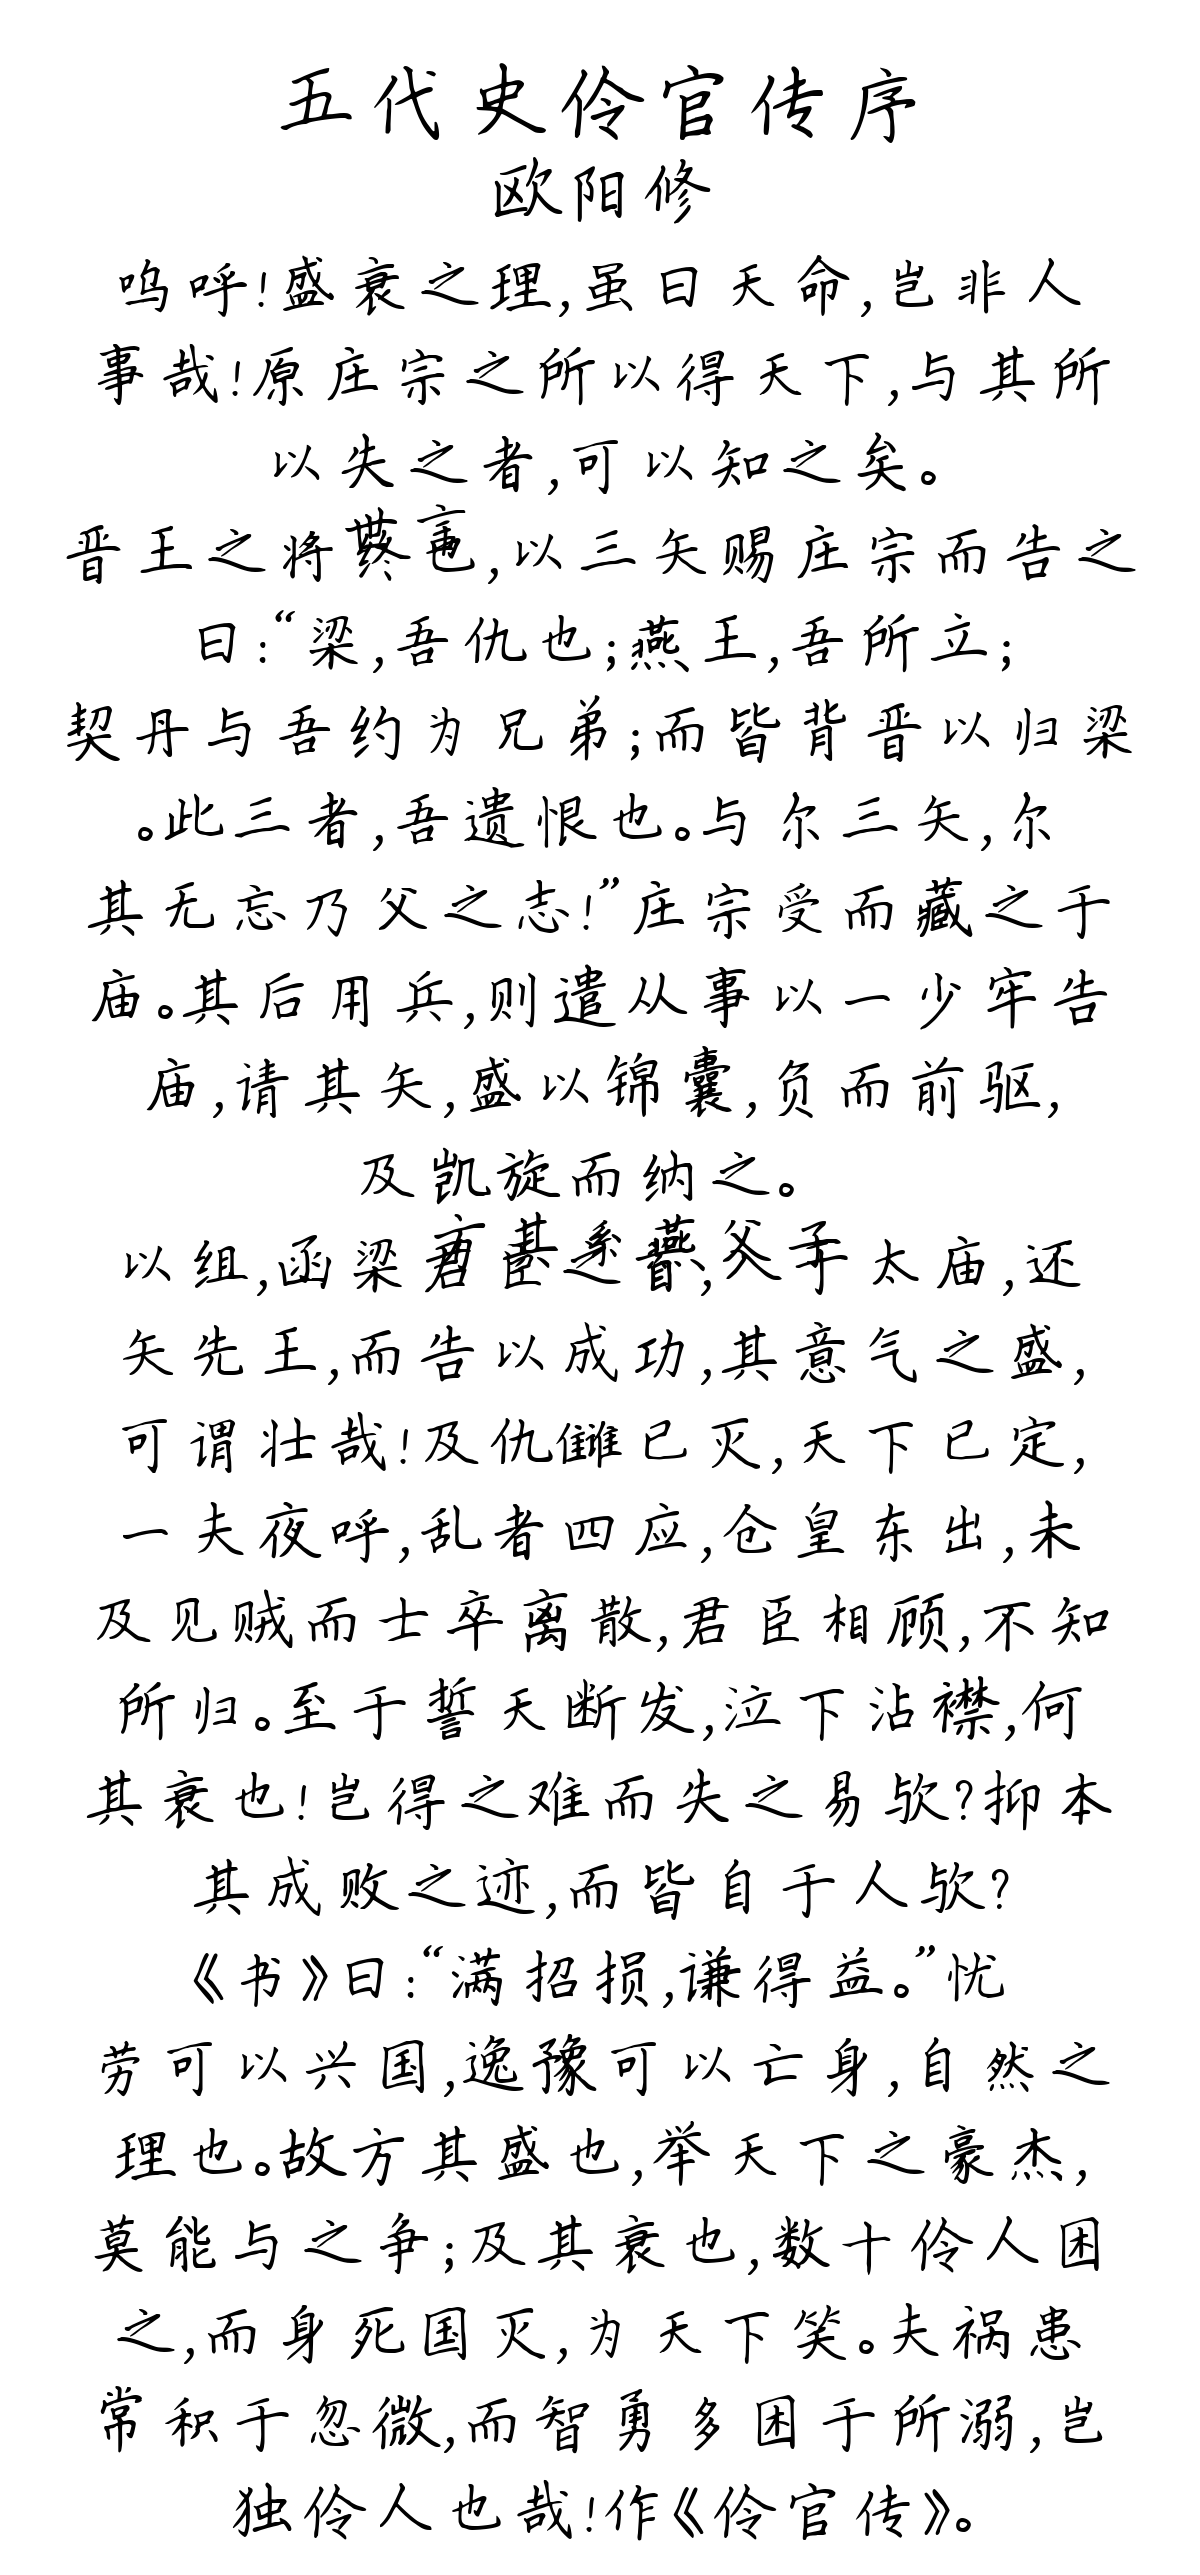 五代史伶官传序
欧阳修
呜呼!盛衰之理,虽曰天命,岂非人
事哉!原庄宗之所以得天下,与其所
以失之者,可以知之矣。
世言
晋王之将终也,以三矢赐庄宗而告之
曰:“梁,吾仇也;燕王,吾所立;
契丹与吾约为兄弟;而皆背晋以归梁
。此三者,吾遗恨也。与尔三矢,尔
其无忘乃父之志!”庄宗受而藏之于
庙。其后用兵,则遣从事以一少牢告
庙,请其矢,盛以锦囊,负而前驱,
及凯旋而纳之。
方其系燕父子
以组,函梁君臣之首,入于太庙,还
矢先王,而告以成功,其意气之盛,
可谓壮哉!及仇雠已灭,天下已定,
一夫夜呼,乱者四应,仓皇东出,未
及见贼而士卒离散,君臣相顾,不知
所归。至于誓天断发,泣下沾襟,何
其衰也!岂得之难而失之易欤?抑本
其成败之迹,而皆自于人欤?
《书》曰:“满招损,谦得益。”忧
劳可以兴国,逸豫可以亡身,自然之
理也。故方其盛也,举天下之豪杰,
莫能与之争;及其衰也,数十伶人困
之,而身死国灭,为天下笑。夫祸患
常积于忽微,而智勇多困于所溺,岂
独伶人也哉!作《伶官传》。